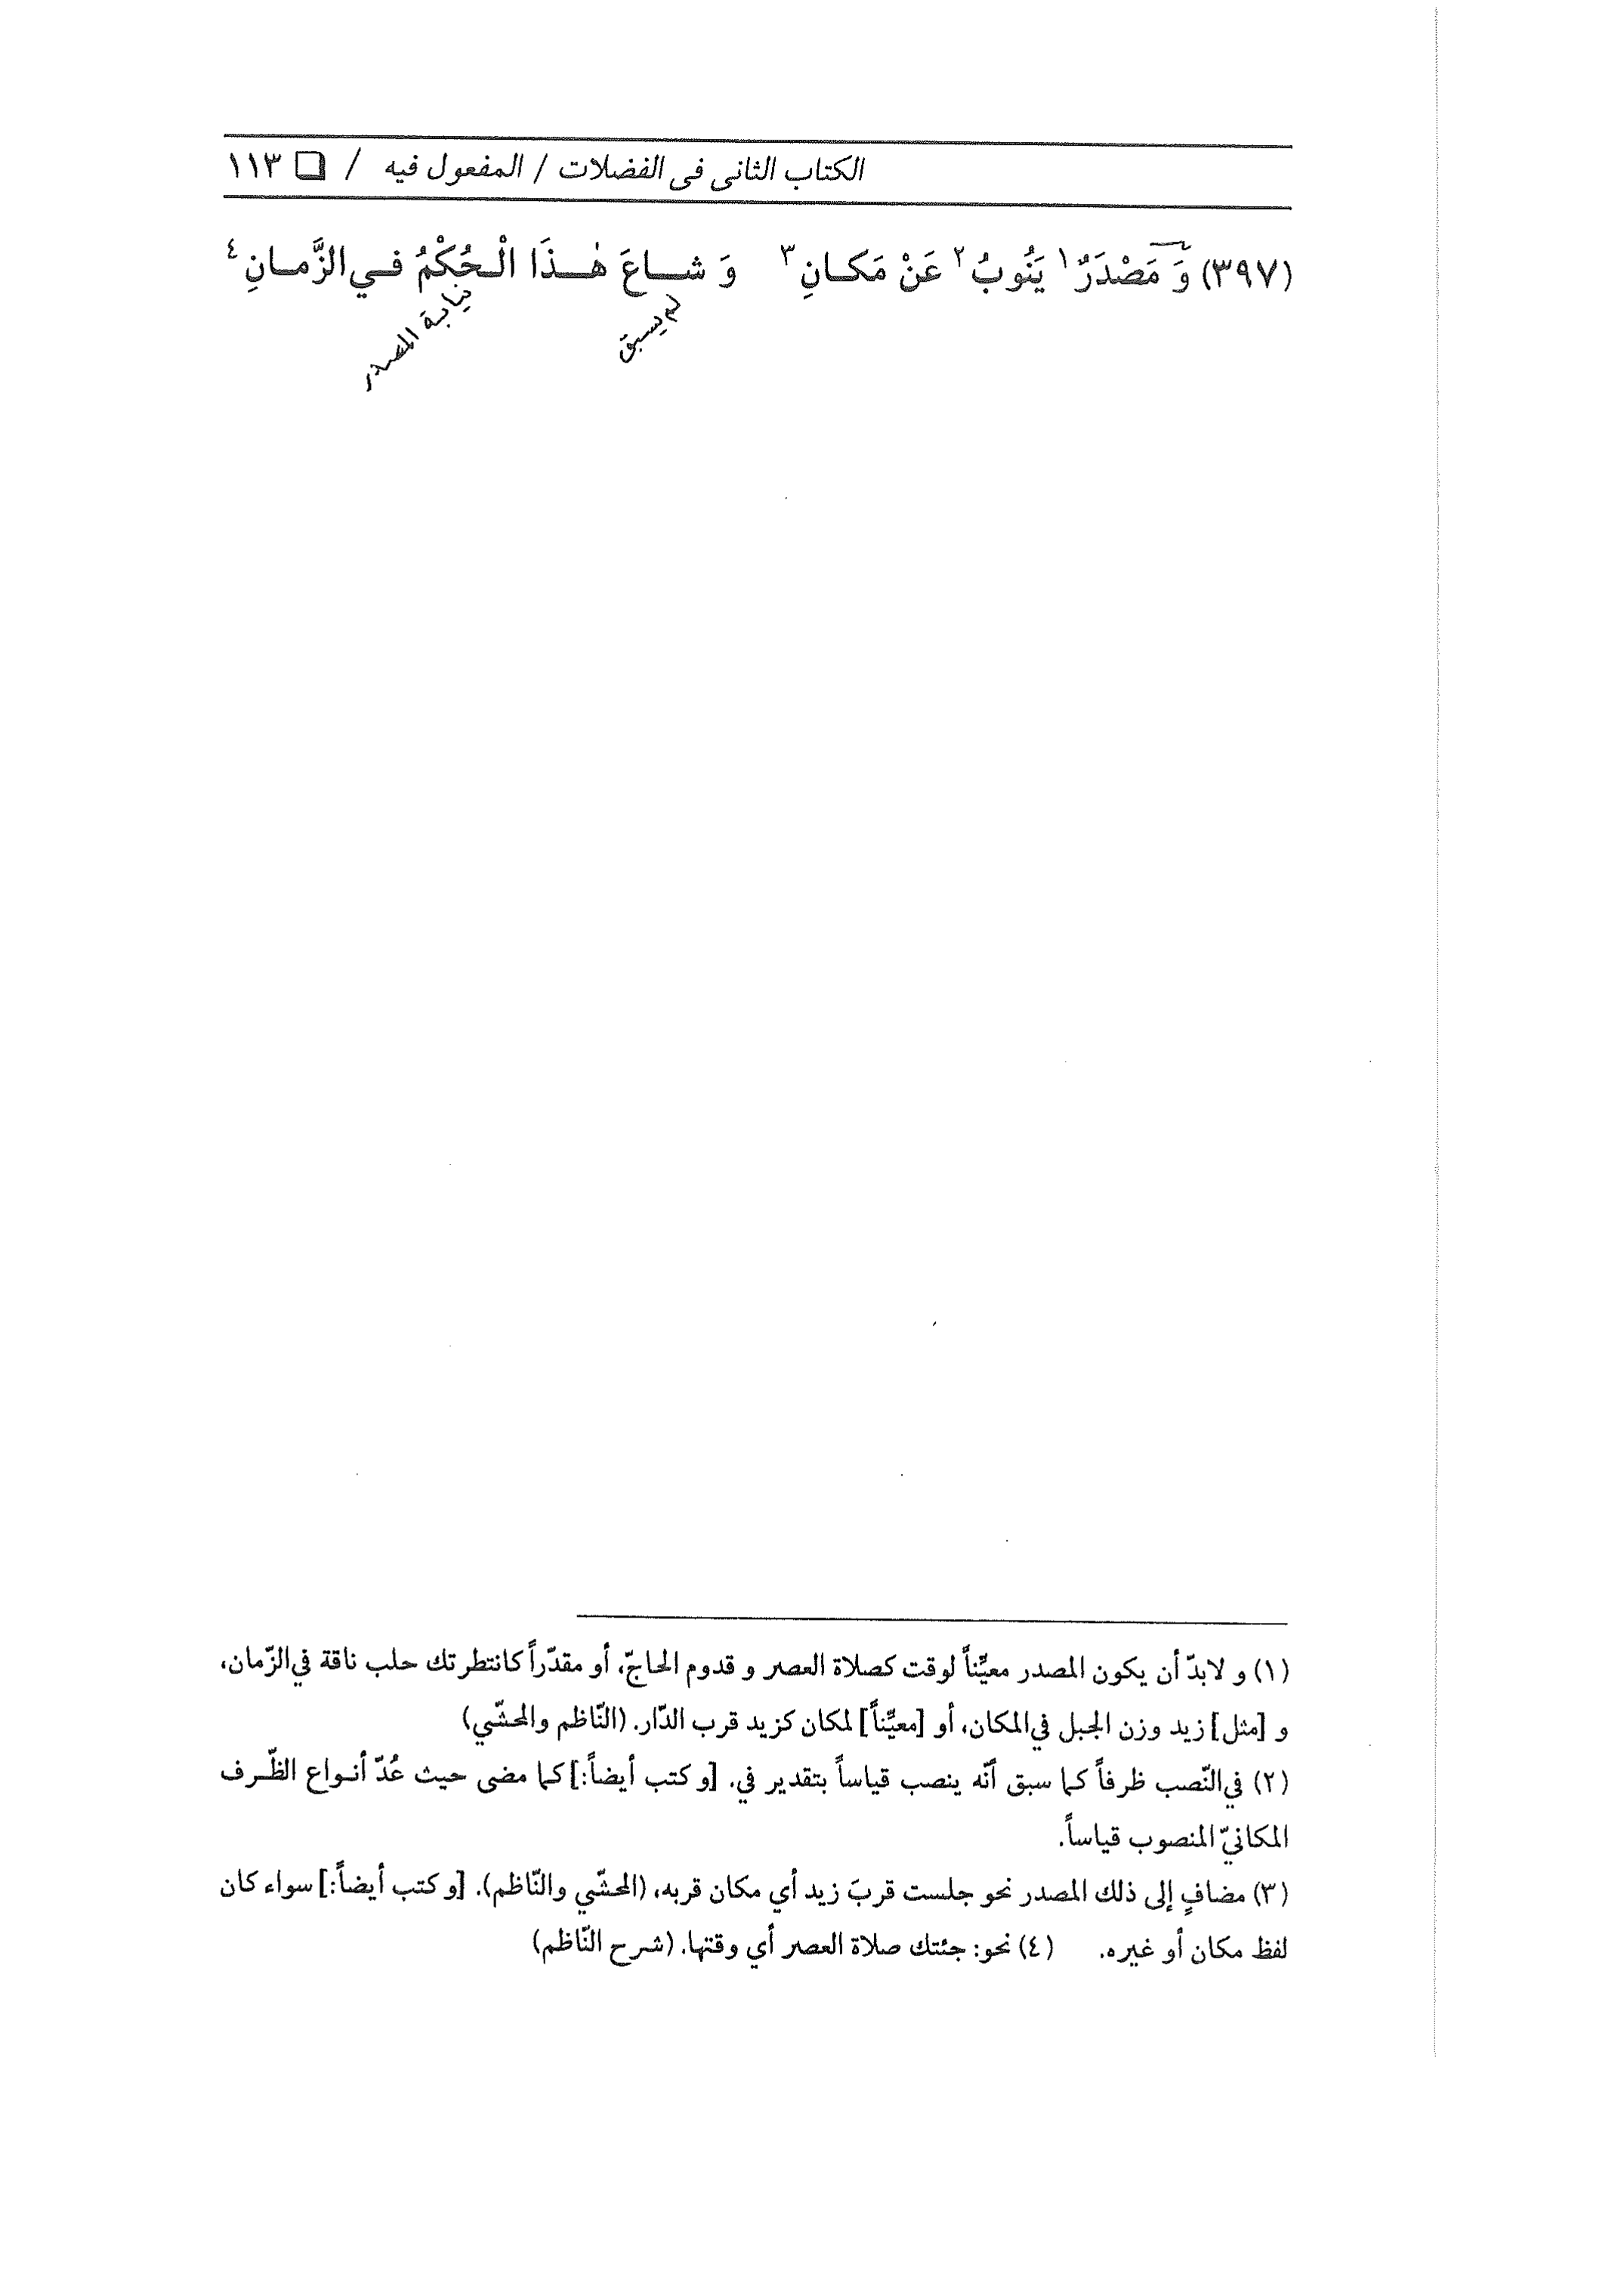 الكتاب الثانى فى الفضلات / المفعول فيه / □ ١١٣
(٣٩٧) وَ مَصْدَرٌ١ يَنُوبُ٢ عَنْ مَكـانِ٣ وَ شـــاعَ هٰـــذَا الْـحُكْمُ فـي الزَّمـانِ٤
لم يسبق
نيابة المصدر
(١) و لابدّ أن يكون المصدر معيِّناً لوقت كصلاة العصر و قدوم الحاجّ، أو مقدّراً كانتطرتك حلب ناقة في الزّمان،
و [مثل] زيد وزن الجبل في المكان، أو [معيِّناً] لمكان كزيد قرب الدّار. (النّاظم والمحشّي)
(٢) في النّصب ظرفاً كما سبق أنّه ينصب قياساً بتقدير في. [و كتب أيضاً:] كما مضى حيث عُدّ أنـواع الظّـرف
المكانيّ المنصوب قياساً.
(٣) مضافٍ إلى ذلك المصدر نحو جلست قربَ زيد أي مكان قربه، (المحشّي والنّاظم). [و كتب أيضاً:] سواء كان
لفظ مكان أو غيره. (٤) نحو: جئتك صلاة العصر أي وقتها. (شرح النّاظم)